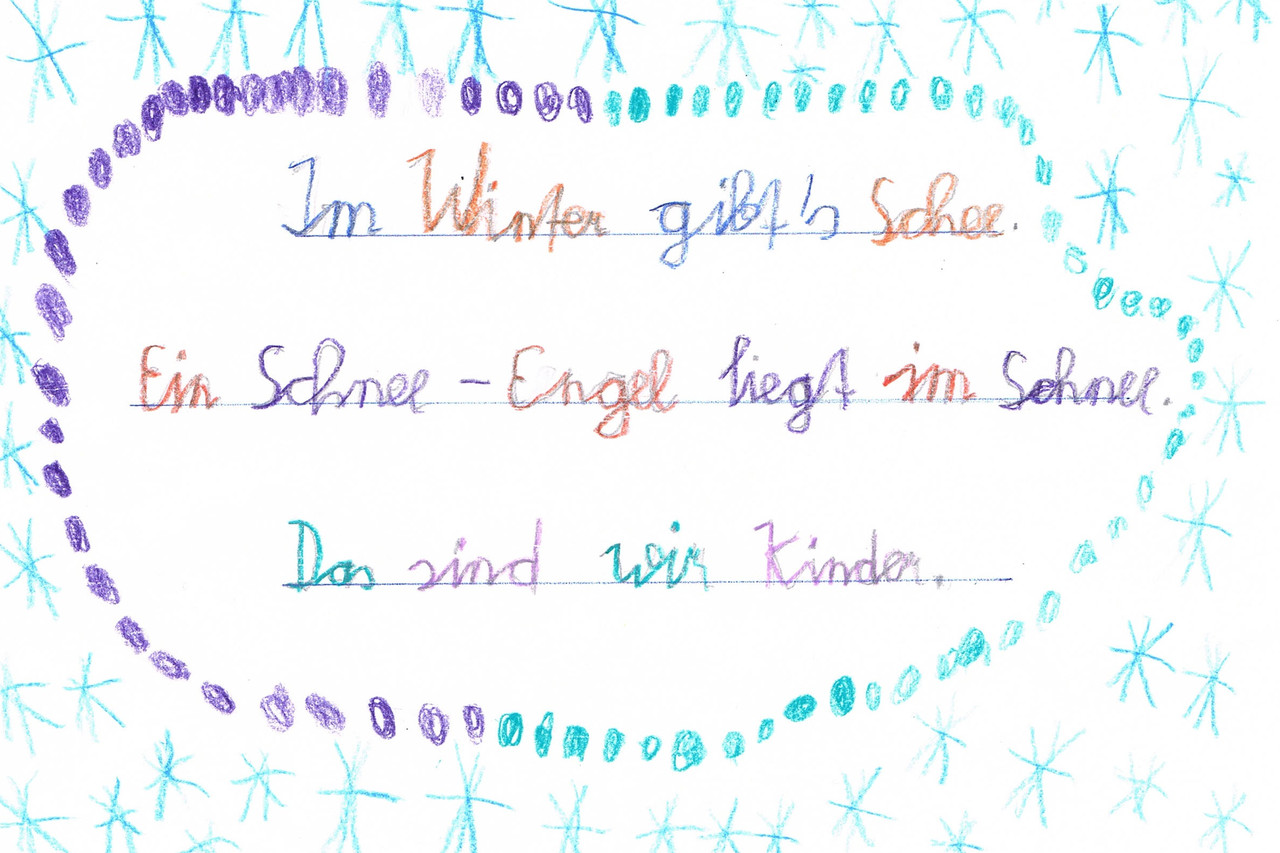 Im Winter gibt's Schee.
Ein Schnee - Engel liegt im Schnee.
Das sind wir Kinder.